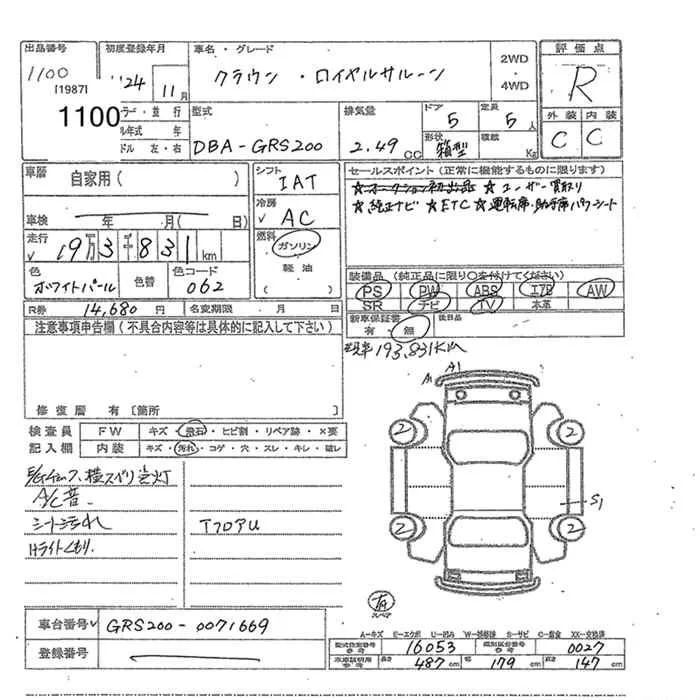 出品番号 初度登録年月 車名・グレード 評価点
1100 H24 11月 クラウン・ロイヤルサルーン 2WD・4WD R
[1987]
1100
カラー・並行 型式 排気量 ドア 5 定員 5人 外装 内装
モデル年式 年 DBA-GRS200 2.49 CC 形状 箱型 積載 Kg C C
ハンドル 左・右
車歴 自家用( ) シフト IAT セールスポイント(正常に機能するものに限ります)
冷房 AC ★オークション初出品 ★ユーザー買取り
車検 年 月( 日) ★純正ナビ ★ETC ★運転席・助手席パワーシート
走行 19万3千831km 燃料 ガソリン・軽油
色 ホワイトパール 色替 色コード 062 装備品(純正品に限り○を付けてください)
PS PW ABS エアB AW
SR ナビ TV 本革
R券 14,680円 名変期限 月 日 新車保証書 有・無 後日品
注意事項申告欄(不具合内容等は具体的に記入して下さい)
現車193,831KM
A A1
修復歴 有[箇所
検査員 FW キズ・飛石・ヒビ割・リペア跡・×要
記入欄 内装 キズ・汚れ・コゲ・穴・スレ・キレ・破レ
2 2
E/Gチェック、横スベリ警灯
A/C音 S1
シート汚れ TフロアU
Hライトくもり 2 2
有
スペア
車台番号 GRS200-0071669 A-キズ E-エクボ U-凹み W-補修跡 S-サビ C-腐食 XX-交換済
型式指定番号 参考 16053 類別区分番号 参考 0027
登録番号 車庫証明用 参考 長さ 487cm 幅 179cm 高さ 147cm